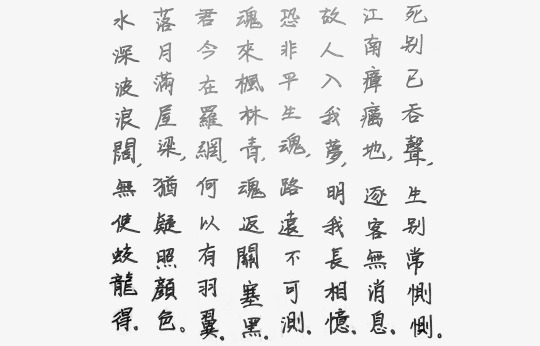 死别已吞聲，生别常惻惻。
江南瘴癘地，逐客無消息、
故人入我夢，明我長相憶、
恐非平生魂，路遠不可測。
魂來楓林青，魂返關塞黑。
君今在羅網，何以有羽翼。
落月滿屋梁，猶疑照顏色。
水深波浪闊，無使蛟龍得。